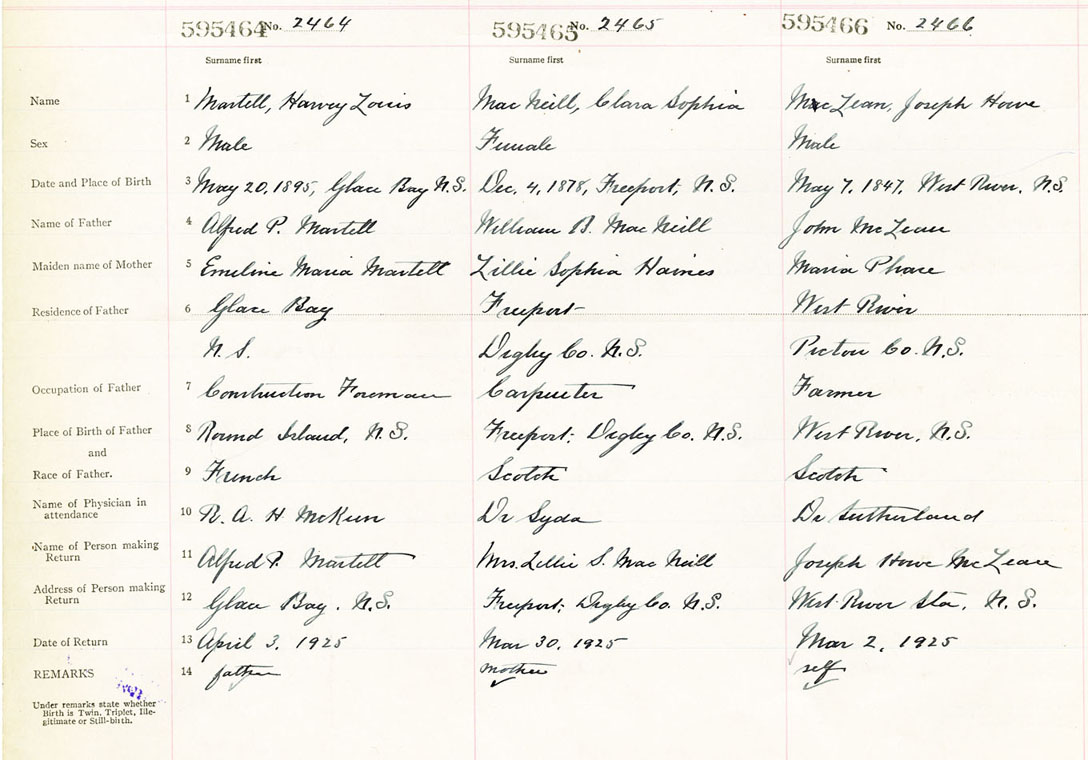 595464 No. 2464 595465 No. 2465 595466 No. 2466
Surname first Surname first Surname first
Name 1 Martell, Harvey Louis Mac Neill, Clara Sophia MacLean, Joseph Howe
Sex 2 Male Female Male
Date and Place of Birth 3 May 20, 1895, Glace Bay N.S. Dec. 4, 1878, Freeport, N.S. May 7, 1847, West River, N.S.
Name of Father 4 Alfred P. Martell William B. Mac Neill John McLean
Maiden name of Mother 5 Emeline Maria Martell Lillie Sophia Haines Maria
Residence of Father 6 Glace Bay Freeport West River
N.S. Digby Co. N.S. Pictou Co. N.S.
Occupation of Father 7 Construction Foreman Carpenter Farmer
Place of Birth of Father 8 Round Island, N.S. Freeport, Digby Co. N.S. West River, N.S.
and
Race of Father. 9 French Scotch Scotch
Name of Physician in
attendance 10 R. A. H McKeen Dr Dr Sutherland
Name of Person making
Return 11 Alfred P. Martell Mrs. Lillie S. Mac Neill Joseph Howe McLean
Address of Person making
Return 12 Glace Bay, N.S. Freeport, Digby Co. N.S. West River Sta, N.S.
Date of Return 13 April 3, 1925 Mar 30, 1925 Mar 2, 1925
REMARKS 14 father mother self
Under remarks state whether
Birth is Twin, Triplet, Ille-
gitimate or Still-birth.